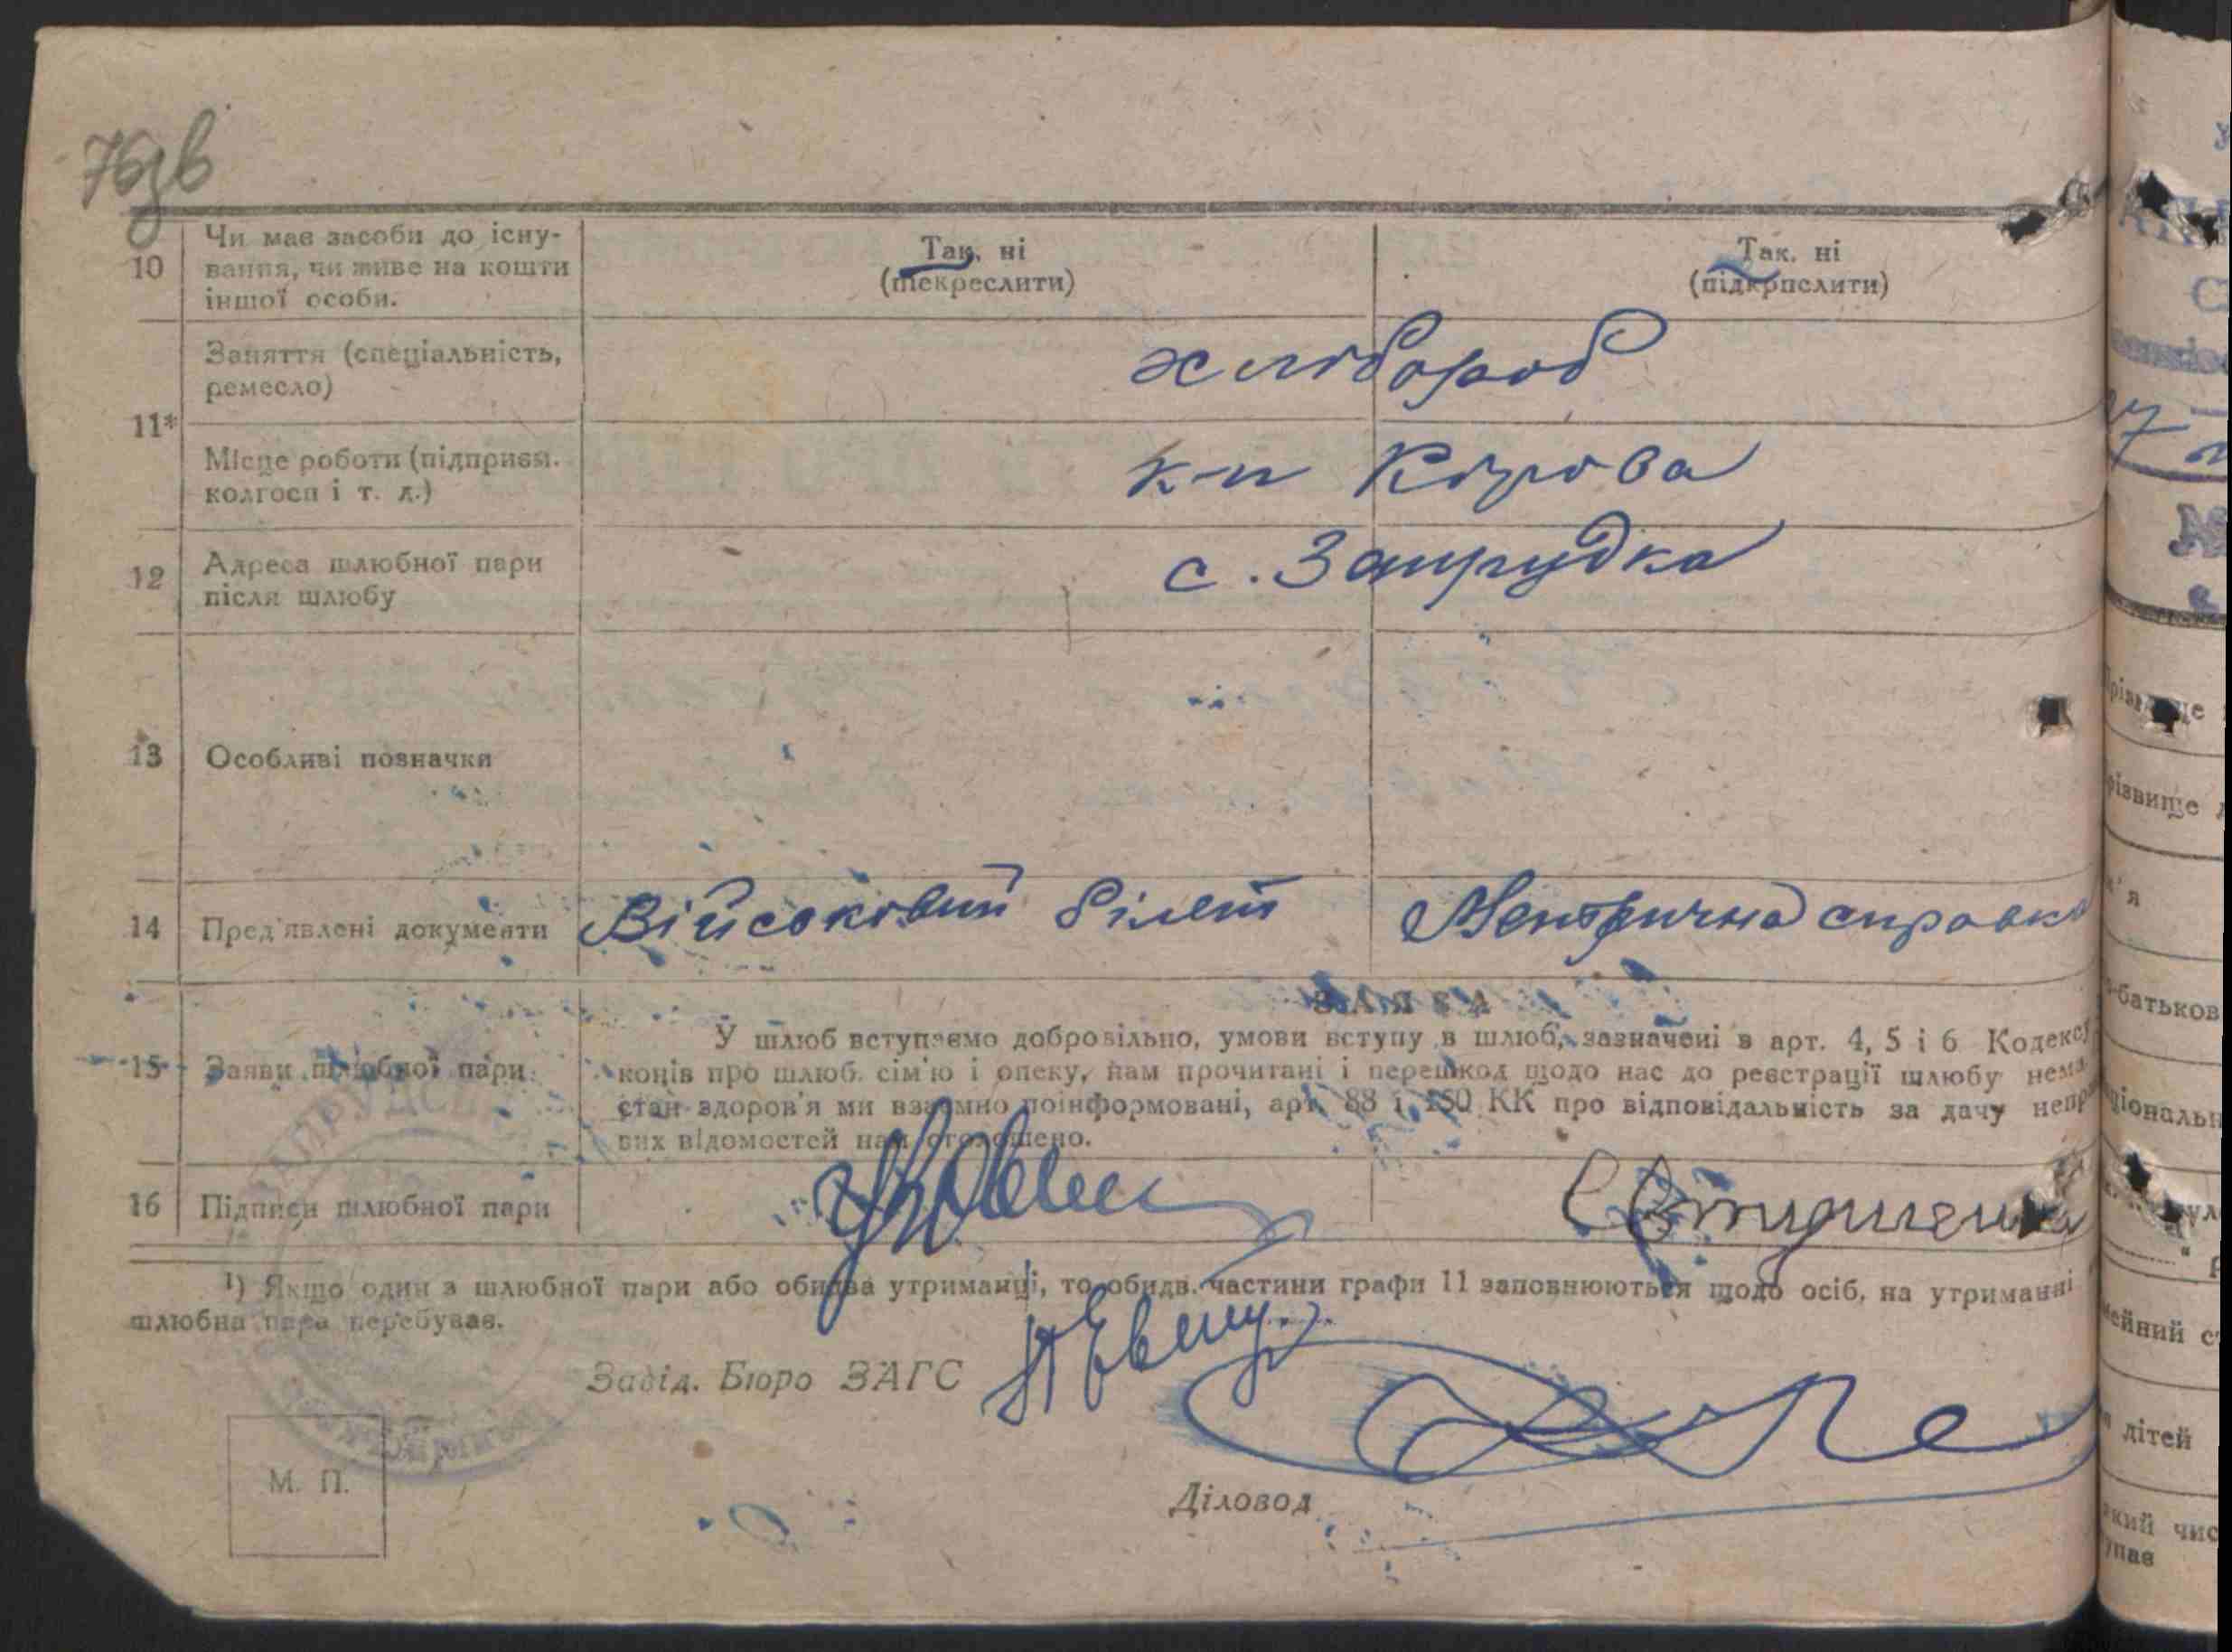 76 зв
10
Чи має засоби до існу-
вання, чи живе на кошти
іншої особи.
Так, ні
(підкреслити)
Так, ні
(підкреслити)
11*
Заняття (спеціальність,
ремесло)
хлібороб
Місце роботи (підприєм.
колгосп і т. д.)
к-п Кірова
12
Адреса шлюбної пари
після шлюбу
с. Запрудка
13
Особливі позначки
14
Пред'явлені документи
Військовий білет
Метрична справка
15
Заяви шлюбної пари
ЗАЯВА
У шлюб вступаємо добровільно, умови вступу в шлюб, зазначені в арт. 4, 5 і 6 Кодексу
конів про шлюб. сім'ю і опеку, нам прочитані і перешкод щодо нас до реєстрації шлюбу нема
стан здоров'я ми взаємно поінформовані, арт. 88 і 150 КК про відповідальність за дачу непра
вих відомостей нам оголошено.
16
Підписи шлюбної пари
¹) Якщо один з шлюбної пари або обидва утриманці, то обидв. частини графи 11 заповнюються щодо осіб, на утриманні
шлюбна пара перебуває.
Завід. Бюро ЗАГС
Діловод
М. П.
різвище
м'я
о-батькові
дітей